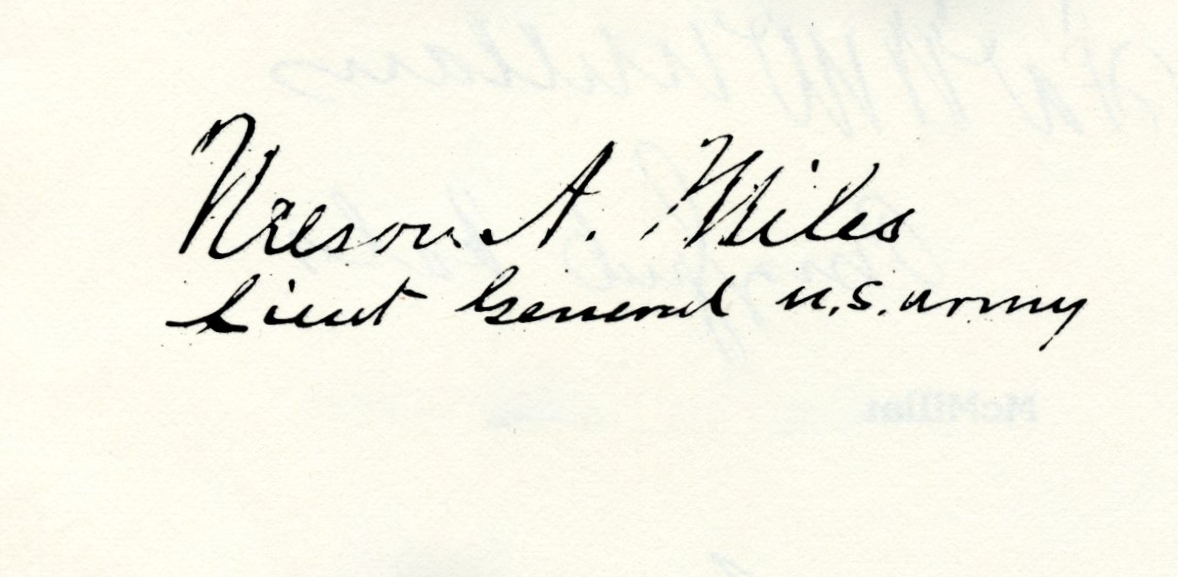 Nelson A. Miles
Lieut General U.S. Army